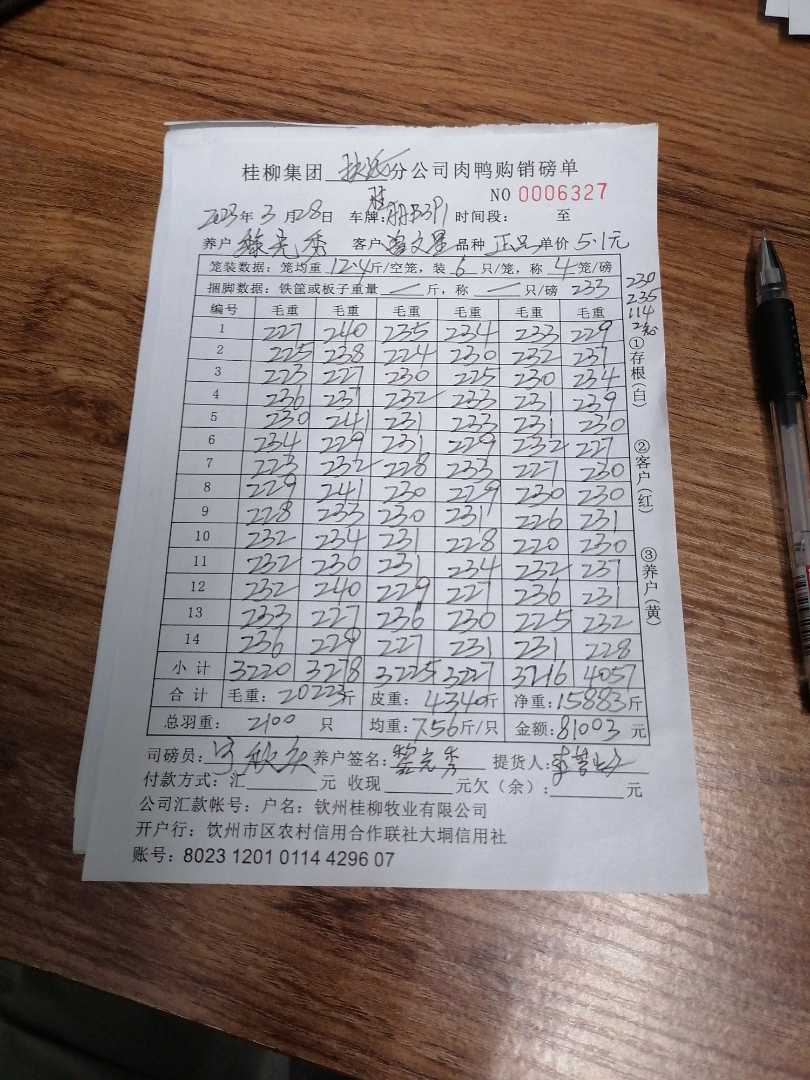 桂柳集团 分公司肉鸭购销磅单
NO 0006327
2023年3月28日 车牌: 时间段: 至
养户 黎亮秀 客户 曾文星 品种 正品 单价 5.1元
笼装数据: 笼均重 12.4 斤/空笼, 装 6 只/笼, 称 4 笼/磅
捆脚数据: 铁筐或板子重量 — 斤, 称 — 只/磅 233
230
235
114
编号 毛重 毛重 毛重 毛重 毛重 毛重
1 227 240 235 234 233 229
2 225 238 224 230 232 231
3 223 227 230 225 230 234
4 236 231 232 233 231 239
5 230 241 231 233 231 230
6 234 229 231 229 232 227
7 223 232 228 233 227 230
8 229 241 230 229 230 230
9 228 233 230 231 226 231
10 232 234 231 228 220 230
11 232 230 231 234 232 237
12 232 240 229 227 236 231
13 233 227 236 230 225 232
14 236 229 227 231 231 228
小计 3220 3278 3225 3227 3216 4057
合计 毛重: 20223斤 皮重: 4340斤 净重: 15883斤
总羽重: 2100 只 均重: 7.56斤/只 金额: 81003 元
司磅员: 养户签名: 黎亮秀 提货人:
付款方式: 汇 元 收现 元欠(余): 元
公司汇款帐号: 户名: 钦州桂柳牧业有限公司
开户行: 饮州市区农村信用合作联社大垌信用社
账号: 8023 1201 0114 4296 07
①存根(白)
②客户(红)
③养户(黄)